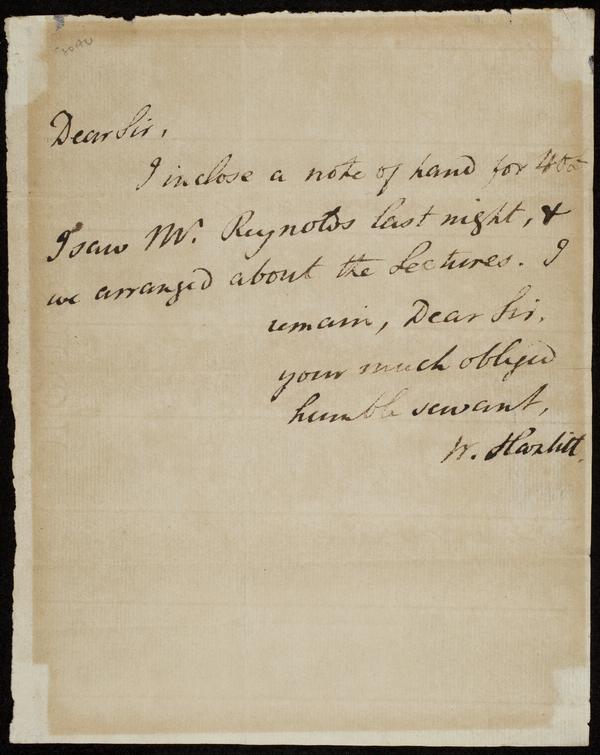 Dear Sir,
I inclose a note of hand for 40£
I saw Mr. Reynolds last night, &
we arranged about the Lectures. I
remain, Dear Sir,
your much obliged
humble servant,
W. Hazlitt.